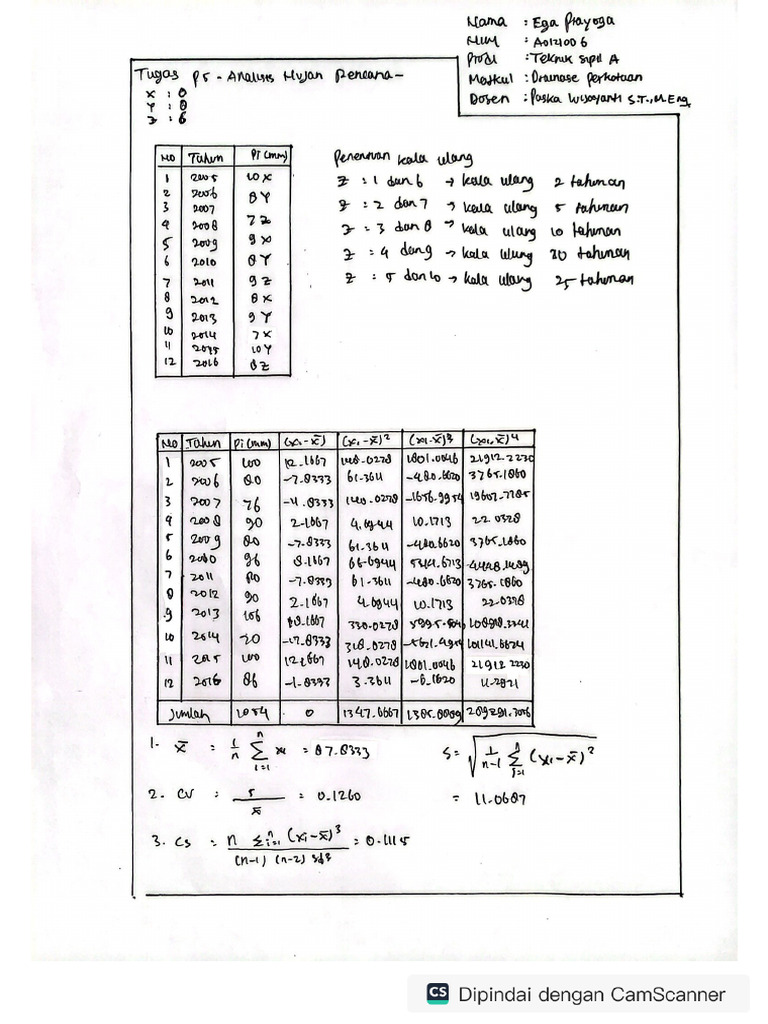 Nama : Ega Prayoga
NIM : A0121006
Prodi : Teknik Sipil A
Matkul : Drainase Perkotaan
Dosen : Paska Wijayanti S.T., M.Eng
Tugas P5 - Analisis Hujan Rencana -
X : 0
Y : 0
Z : 6
NO Tahun Pi (mm)
1 2005 10X
2 2006 8Y
3 2007 7Z
4 2008 9X
5 2009 8Y
6 2010 9Z
7 2011 8X
8 2012 9Y
9 2013
10 2014 7X
11 2015 10Y
12 2016 8Z
Penentuan kala ulang
Z : 1 dan 6 → kala ulang 2 tahunan
Z : 2 dan 7 → kala ulang 5 tahunan
Z : 3 dan 8 → kala ulang 10 tahunan
Z : 4 dan 9 → kala ulang 20 tahunan
Z : 5 dan 10 → kala ulang 25 tahunan
NO Tahun Pi (mm) (xi-x̄) (xi-x̄)² (xi-x̄)³ (xi-x̄)⁴
1 2005 100 12.1667 148.0278 1801.0046 21912.2230
2 2006 80 -7.8333 61.3611 -480.6620 3765.1860
3 2007 76 140.0278 -1656.9954
4 2008 90 2.1667 4.6944 10.1713 22.0378
5 2009 80 -7.8333 61.3611 -480.6620 3765.1860
6 2010 96 8.1667 66.6944
7 2011 80 -7.8333 61.3611 -480.6620 3765.1860
8 2012 90 2.1667 4.6944 10.1713 22.0378
9 2013 106 330.0278
10 2014 70 -17.8333 318.0278 101141.6624
11 2015 100 12.1667 148.0278 1801.0046 21912.2230
12 2016 86 -1.8333 3.3611 -6.1620 11.2971
Jumlah 1054 0 1347.6667
1. x̄ : 1/n Σ xi = 87.8333
n
i=1
S = √ 1/n-1 Σ (xi-x̄)²
= 11.0687
2. CV : s/x̄ = 0.1260
3. Cs : n Σⁿi=1 (xi-x̄)³ / (n-1) (n-2) sd³ = 0.1115
CS Dipindai dengan CamScanner